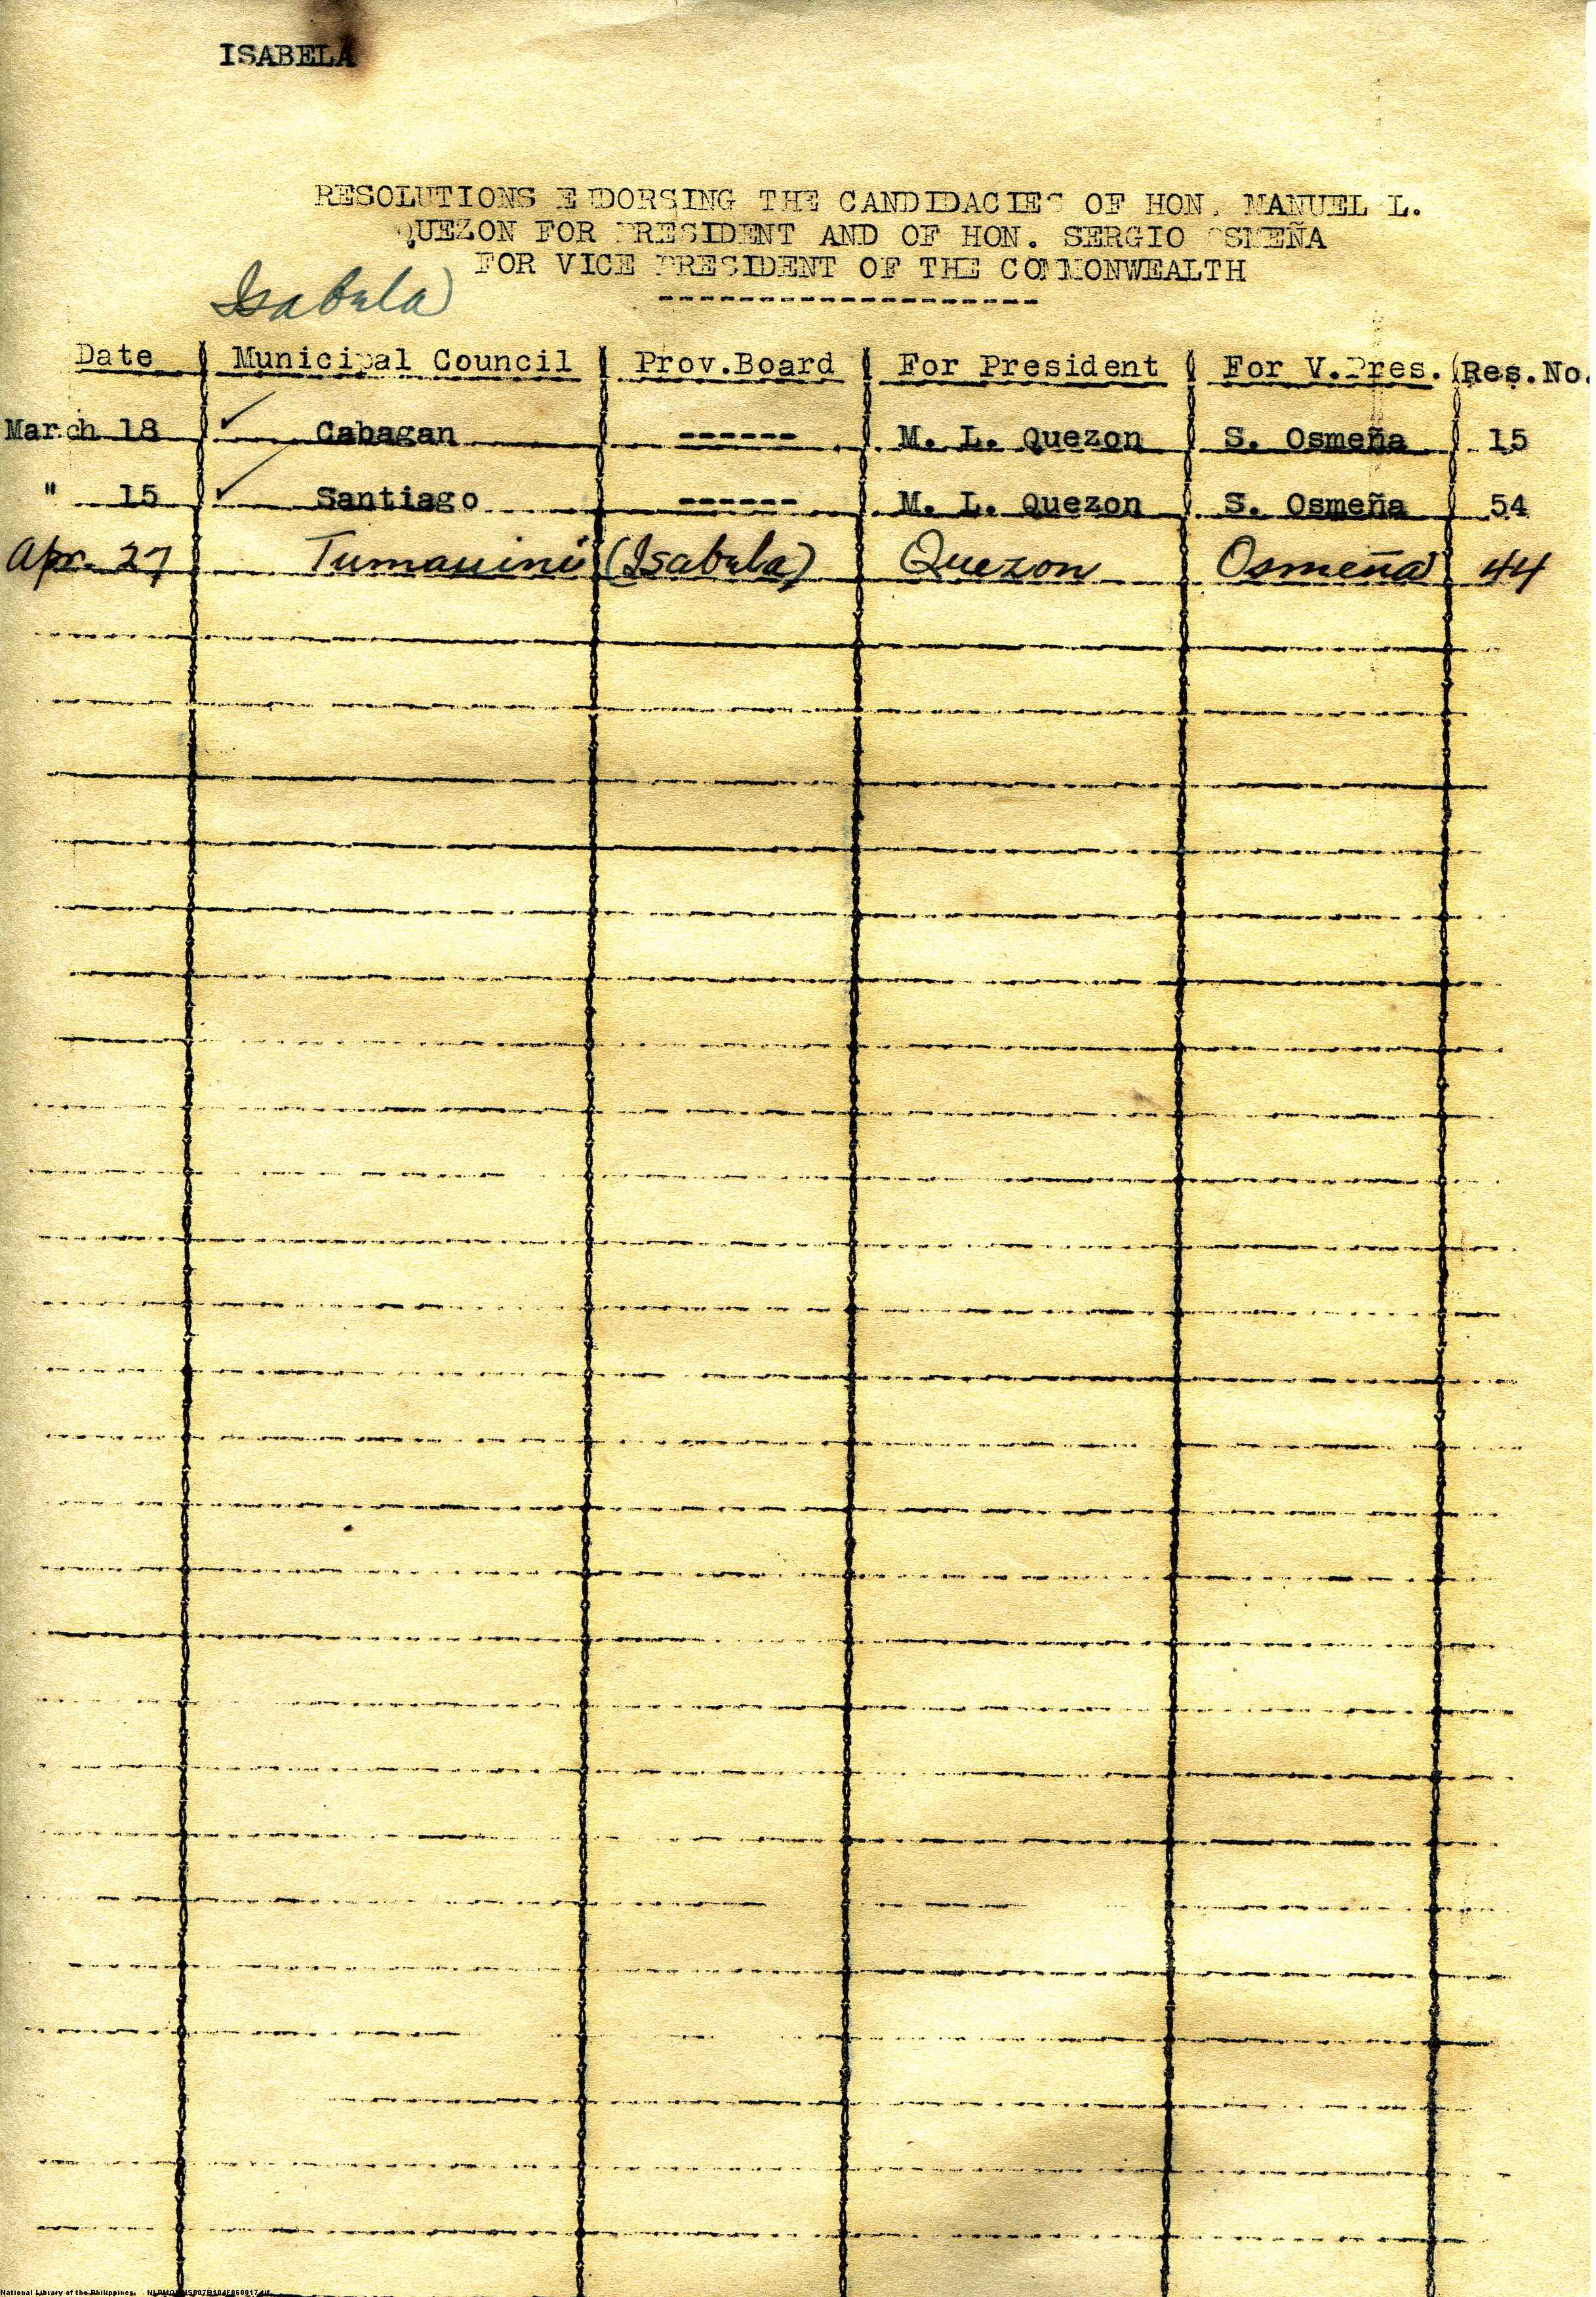 ISABELA
RESOLUTIONS ENDORSING THE CANDIDACIES OF HON. MANUEL L.
QUEZON FOR PRESIDENT AND OF HON. SERGIO OSMEÑA
FOR VICE PRESIDENT OF THE COMMONWEALTH
Isabela
Date Municipal Council Prov.Board For President For V.Pres. Res.No.
March 18 Cabagan ------ M. L. Quezon S. Osmeña 15
" 15 Santiago ------ M. L. Quezon S. Osmeña 54
Apr. 27 Tumauini (Isabela) Quezon Osmeña 44
National Library of the Philippines